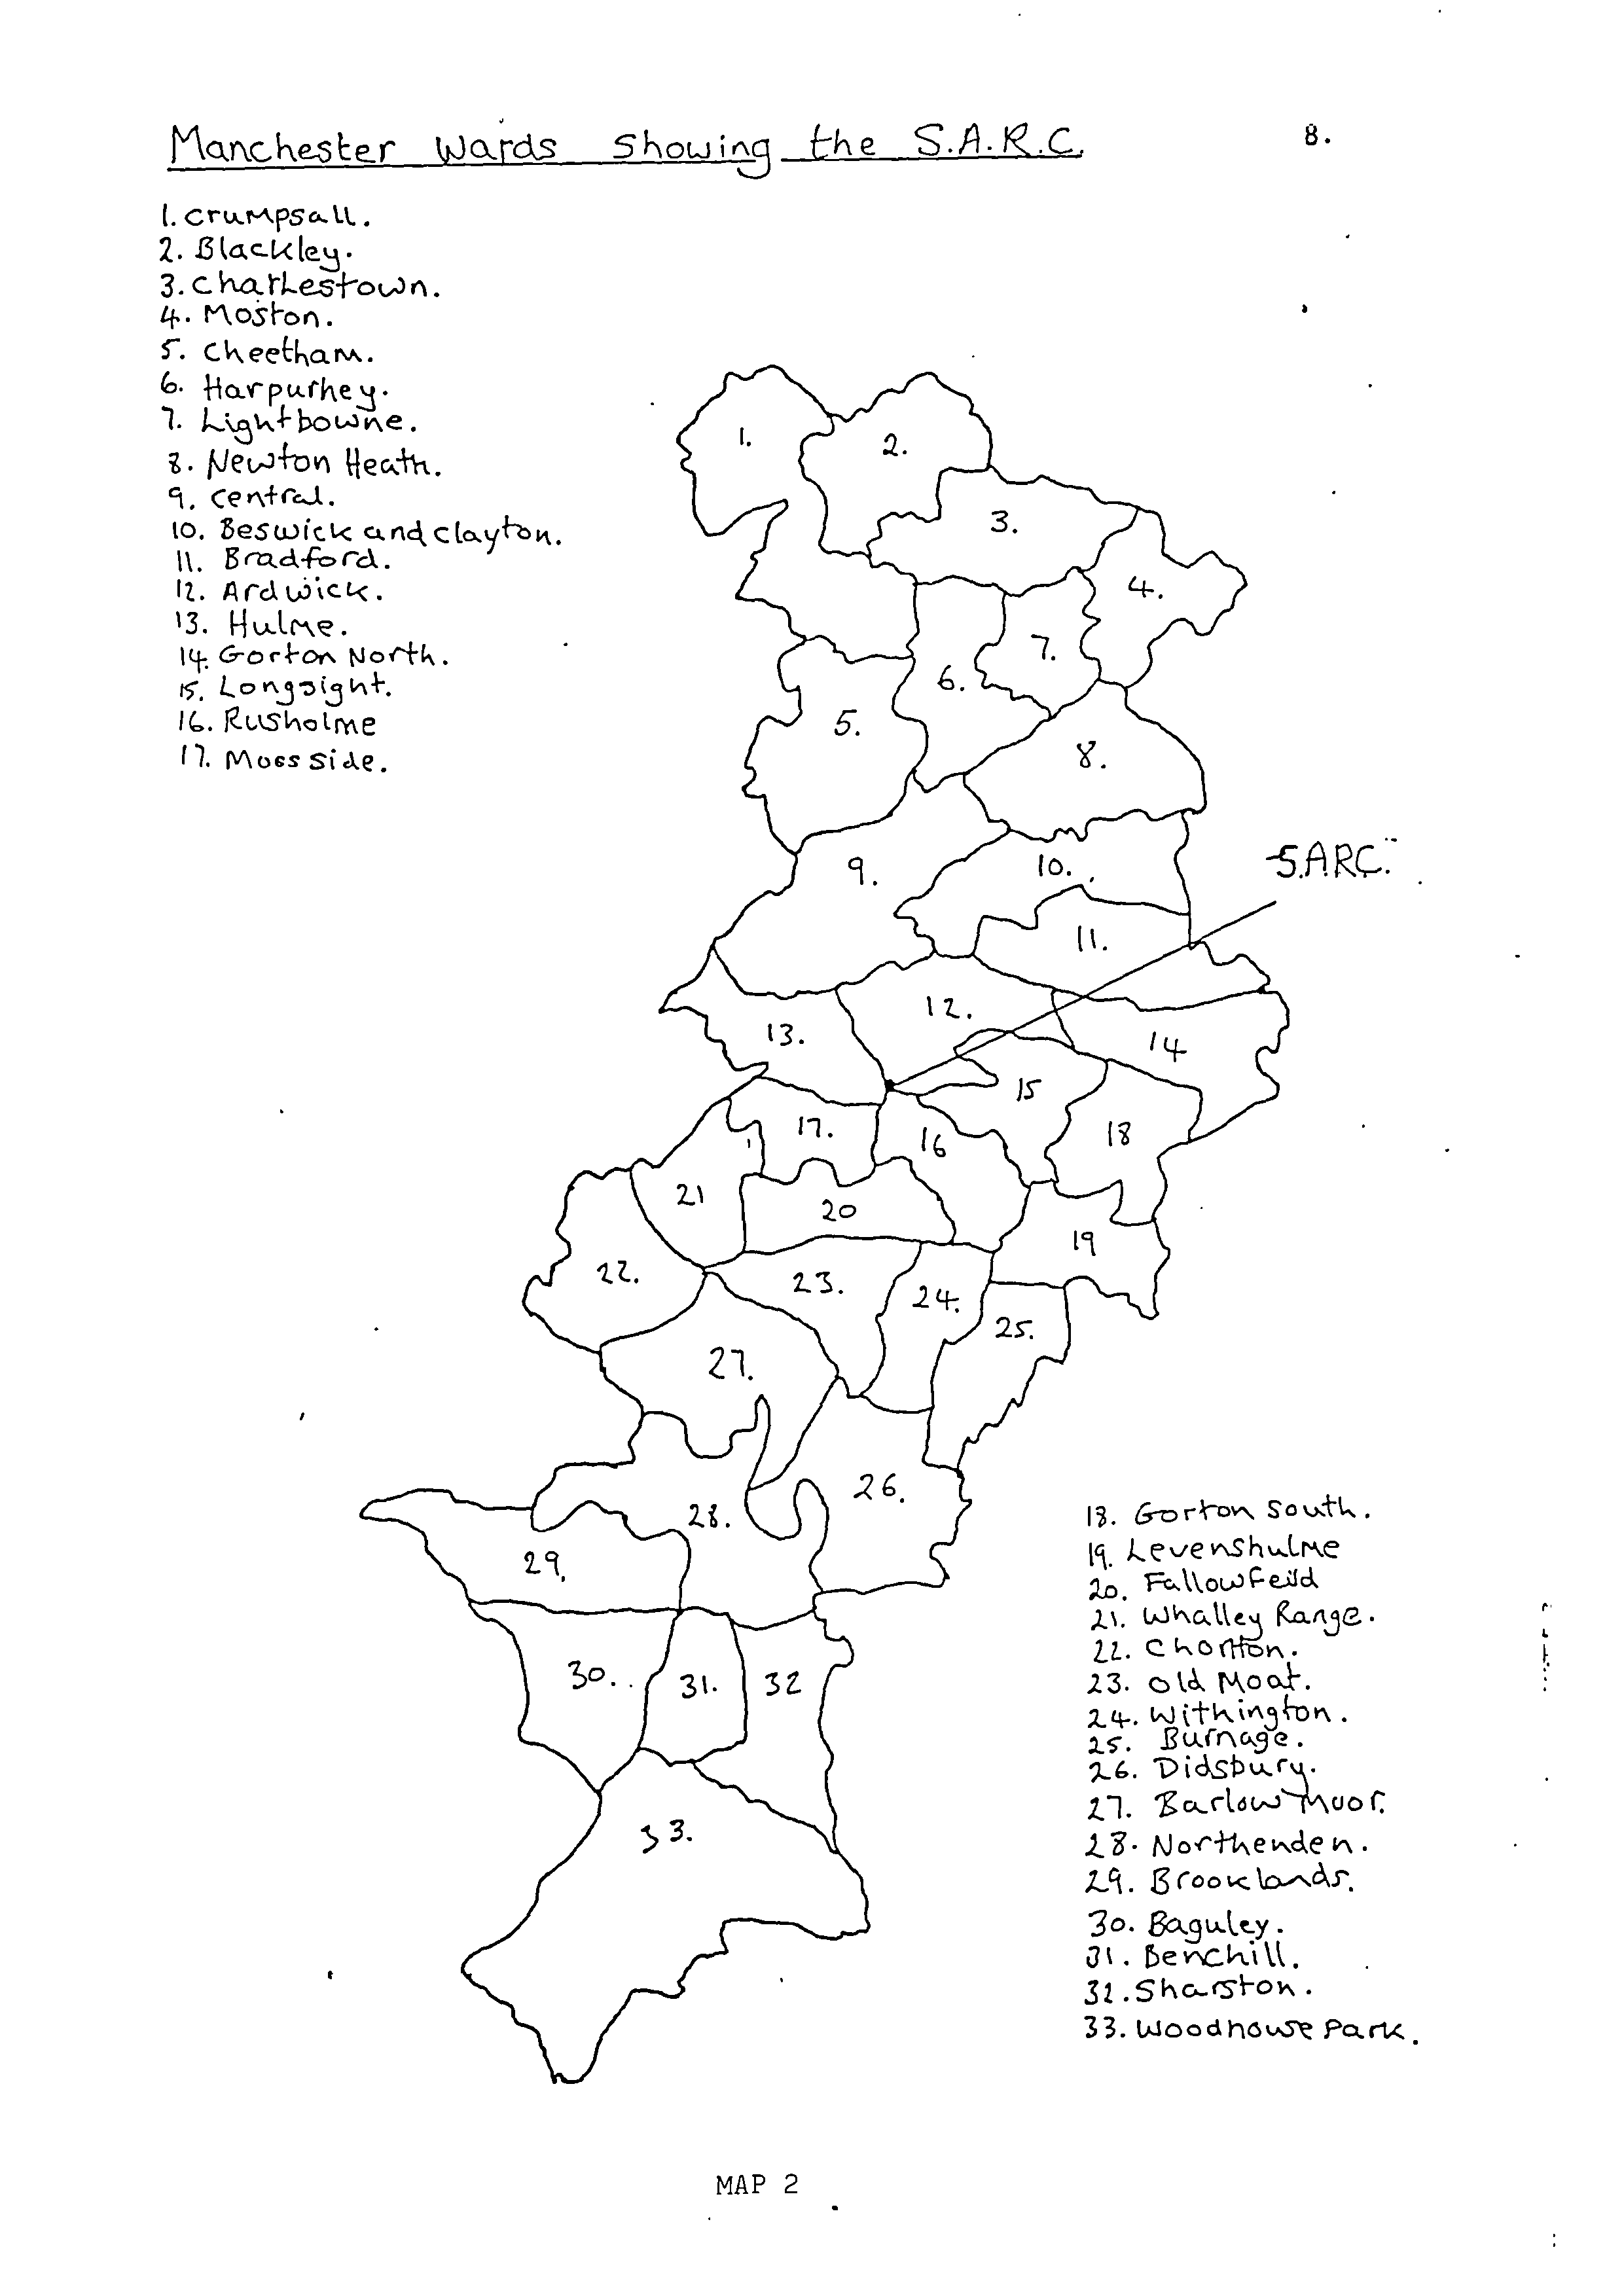 Manchester Wards Showing the S.A.R.C.
8.
1. Crumpsall.
2. Blackley.
3. Charlestown.
4. Moston.
5. Cheetham.
6. Harpurhey.
7. Lightbowne.
8. Newton Heath.
9. Central.
10. Beswick and Clayton.
11. Bradford.
12. Ardwick.
13. Hulme.
14. Gorton North.
15. Longsight.
16. Rusholme
17. Moss side.
1.
2.
3.
4.
7.
6.
5.
8.
S.A.R.C.
9.
10.
11.
12.
13.
14
15
17.
16
18
21
20
19
22.
23.
24.
25.
27.
26.
28.
29.
30.
31.
32
33.
18. Gorton South.
19. Levenshulme
20. Fallowfeild
21. Whalley Range.
22. Chorlton.
23. Old Moat.
24. Withington.
25. Burnage.
26. Didsbury.
27. Barlow Moor.
28. Northenden.
29. Brooklands.
30. Baguley.
31. Benchill.
32. Sharston.
33. Woodhouse Park.
MAP 2